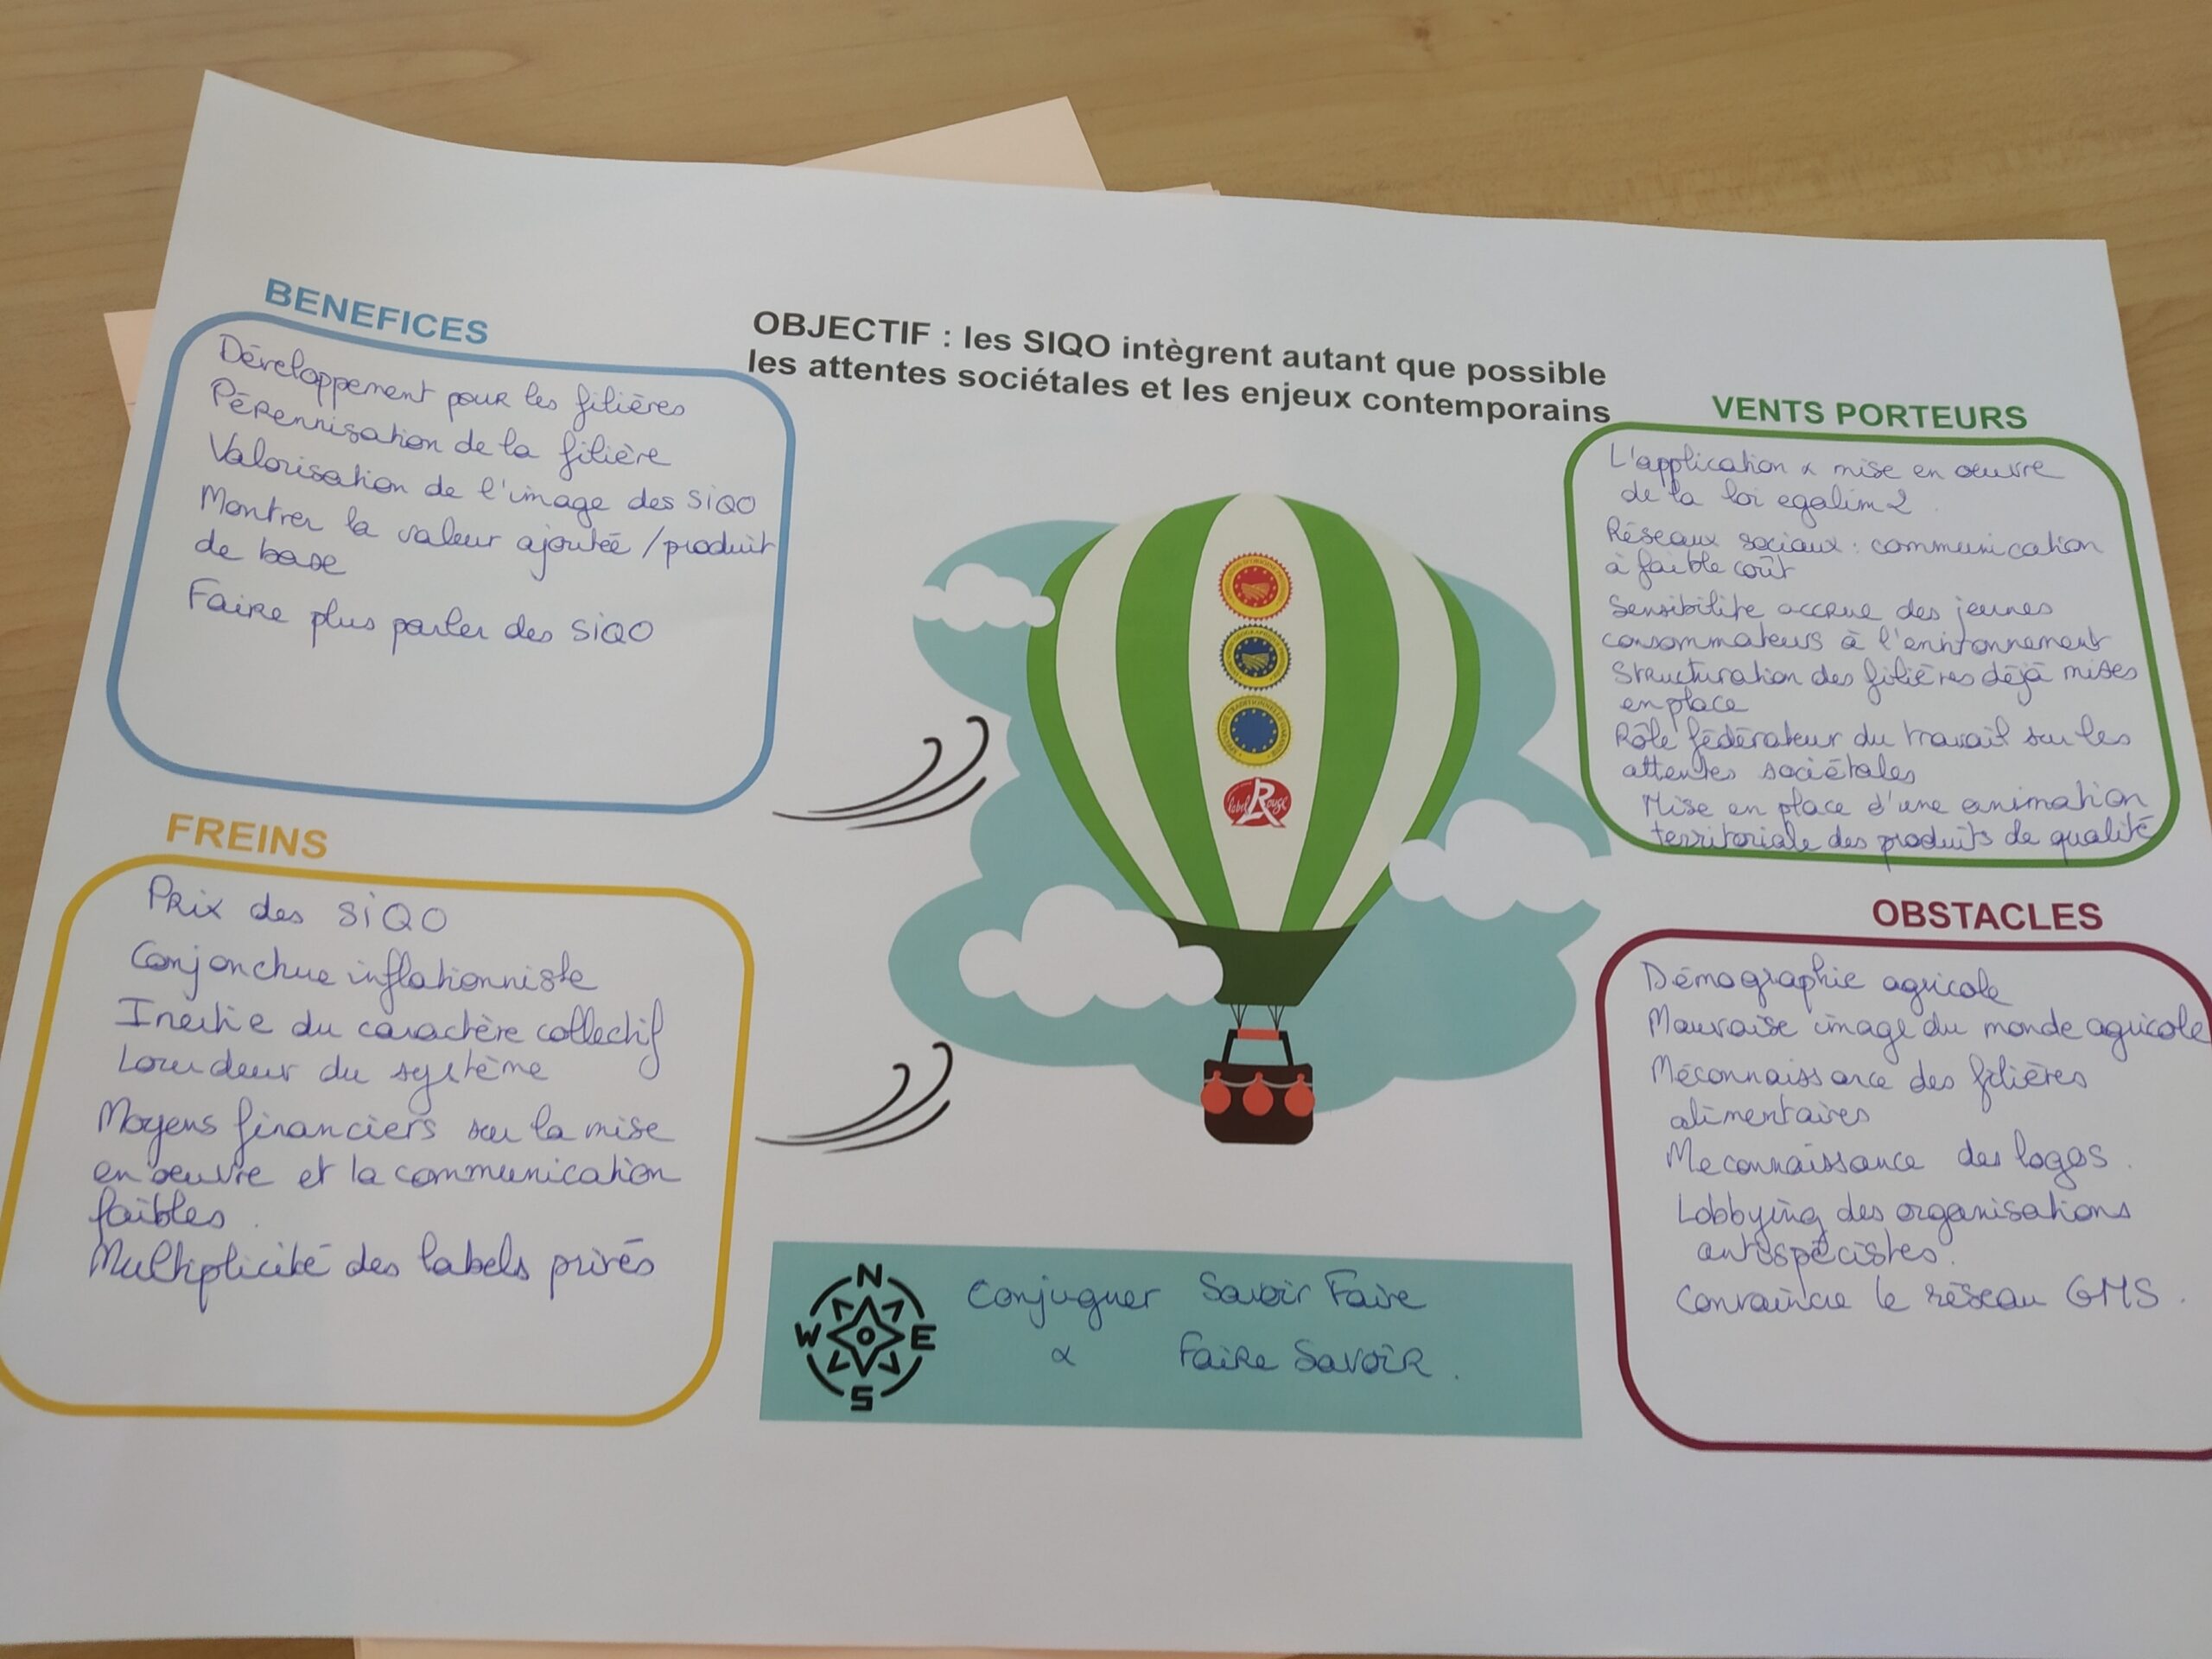 BENEFICES
Développement pour les filières
Pérennisation de la filière
Valorisation de l'image des SIQO
Montrer la valeur ajoutée / produit
de base
Faire plus parler des SIQO
OBJECTIF : les SIQO intègrent autant que possible
les attentes sociétales et les enjeux contemporains
VENTS PORTEURS
L'application & mise en oeuvre
de la loi egalim2.
Réseaux sociaux : communication
à faible coût
Sensibilite accrue des jeunes
consommateurs à l'environnement
Structuration des filières déjà mises
en place
Rôle fédérateur du travail sur les
attentes sociétales
Mise en place d'une animation
territoriale des produits de qualité
FREINS
Prix des SIQO
Conjoncture inflationniste
Inertie du caractère collectif
Lourdeur du système
Moyens financiers sur la mise
en oeuvre et la communication
faibles.
Multiplicité des labels privés
OBSTACLES
Démographie agricole
Mauvaise image du monde agricole
Méconnaissance des filières
alimentaires
Meconnaissance des logos.
Lobbying des organisations
antispécistes.
Convaincre le réseau GMS.
label Rouge
N
W E
S
Conjuguer Savoir Faire
& Faire Savoir.